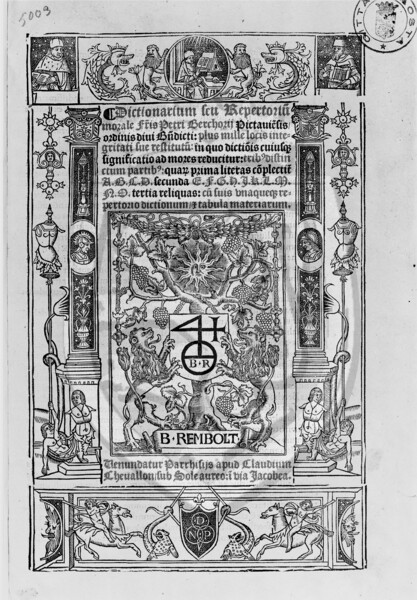 5009
Dictionarium seu Repertoriū
morale Fr̄is Petri Berchorij Pictauiēsis
ordinis diui Bn̄dicti: plus mille locis inte
gritati sue restitutū: in quo dictiōis cuiusq̨
significatio ad mores reducitur: trib⁹ distin
ctum partib⁹: quaꝝ prima literas cōplectit̄
A.B.C.D. secunda E.F.G.H.I.K.L.M.
N.O. tertia reliquas: cū suis vnaqueq̨ re
pertorio dictionum ⁊ tabula materiarum.
B·R
B·REMBOLT
Venundatur Parrhisijs apud Claudium
Cheuallon: sub Sole aureo: ī via Jacobea.